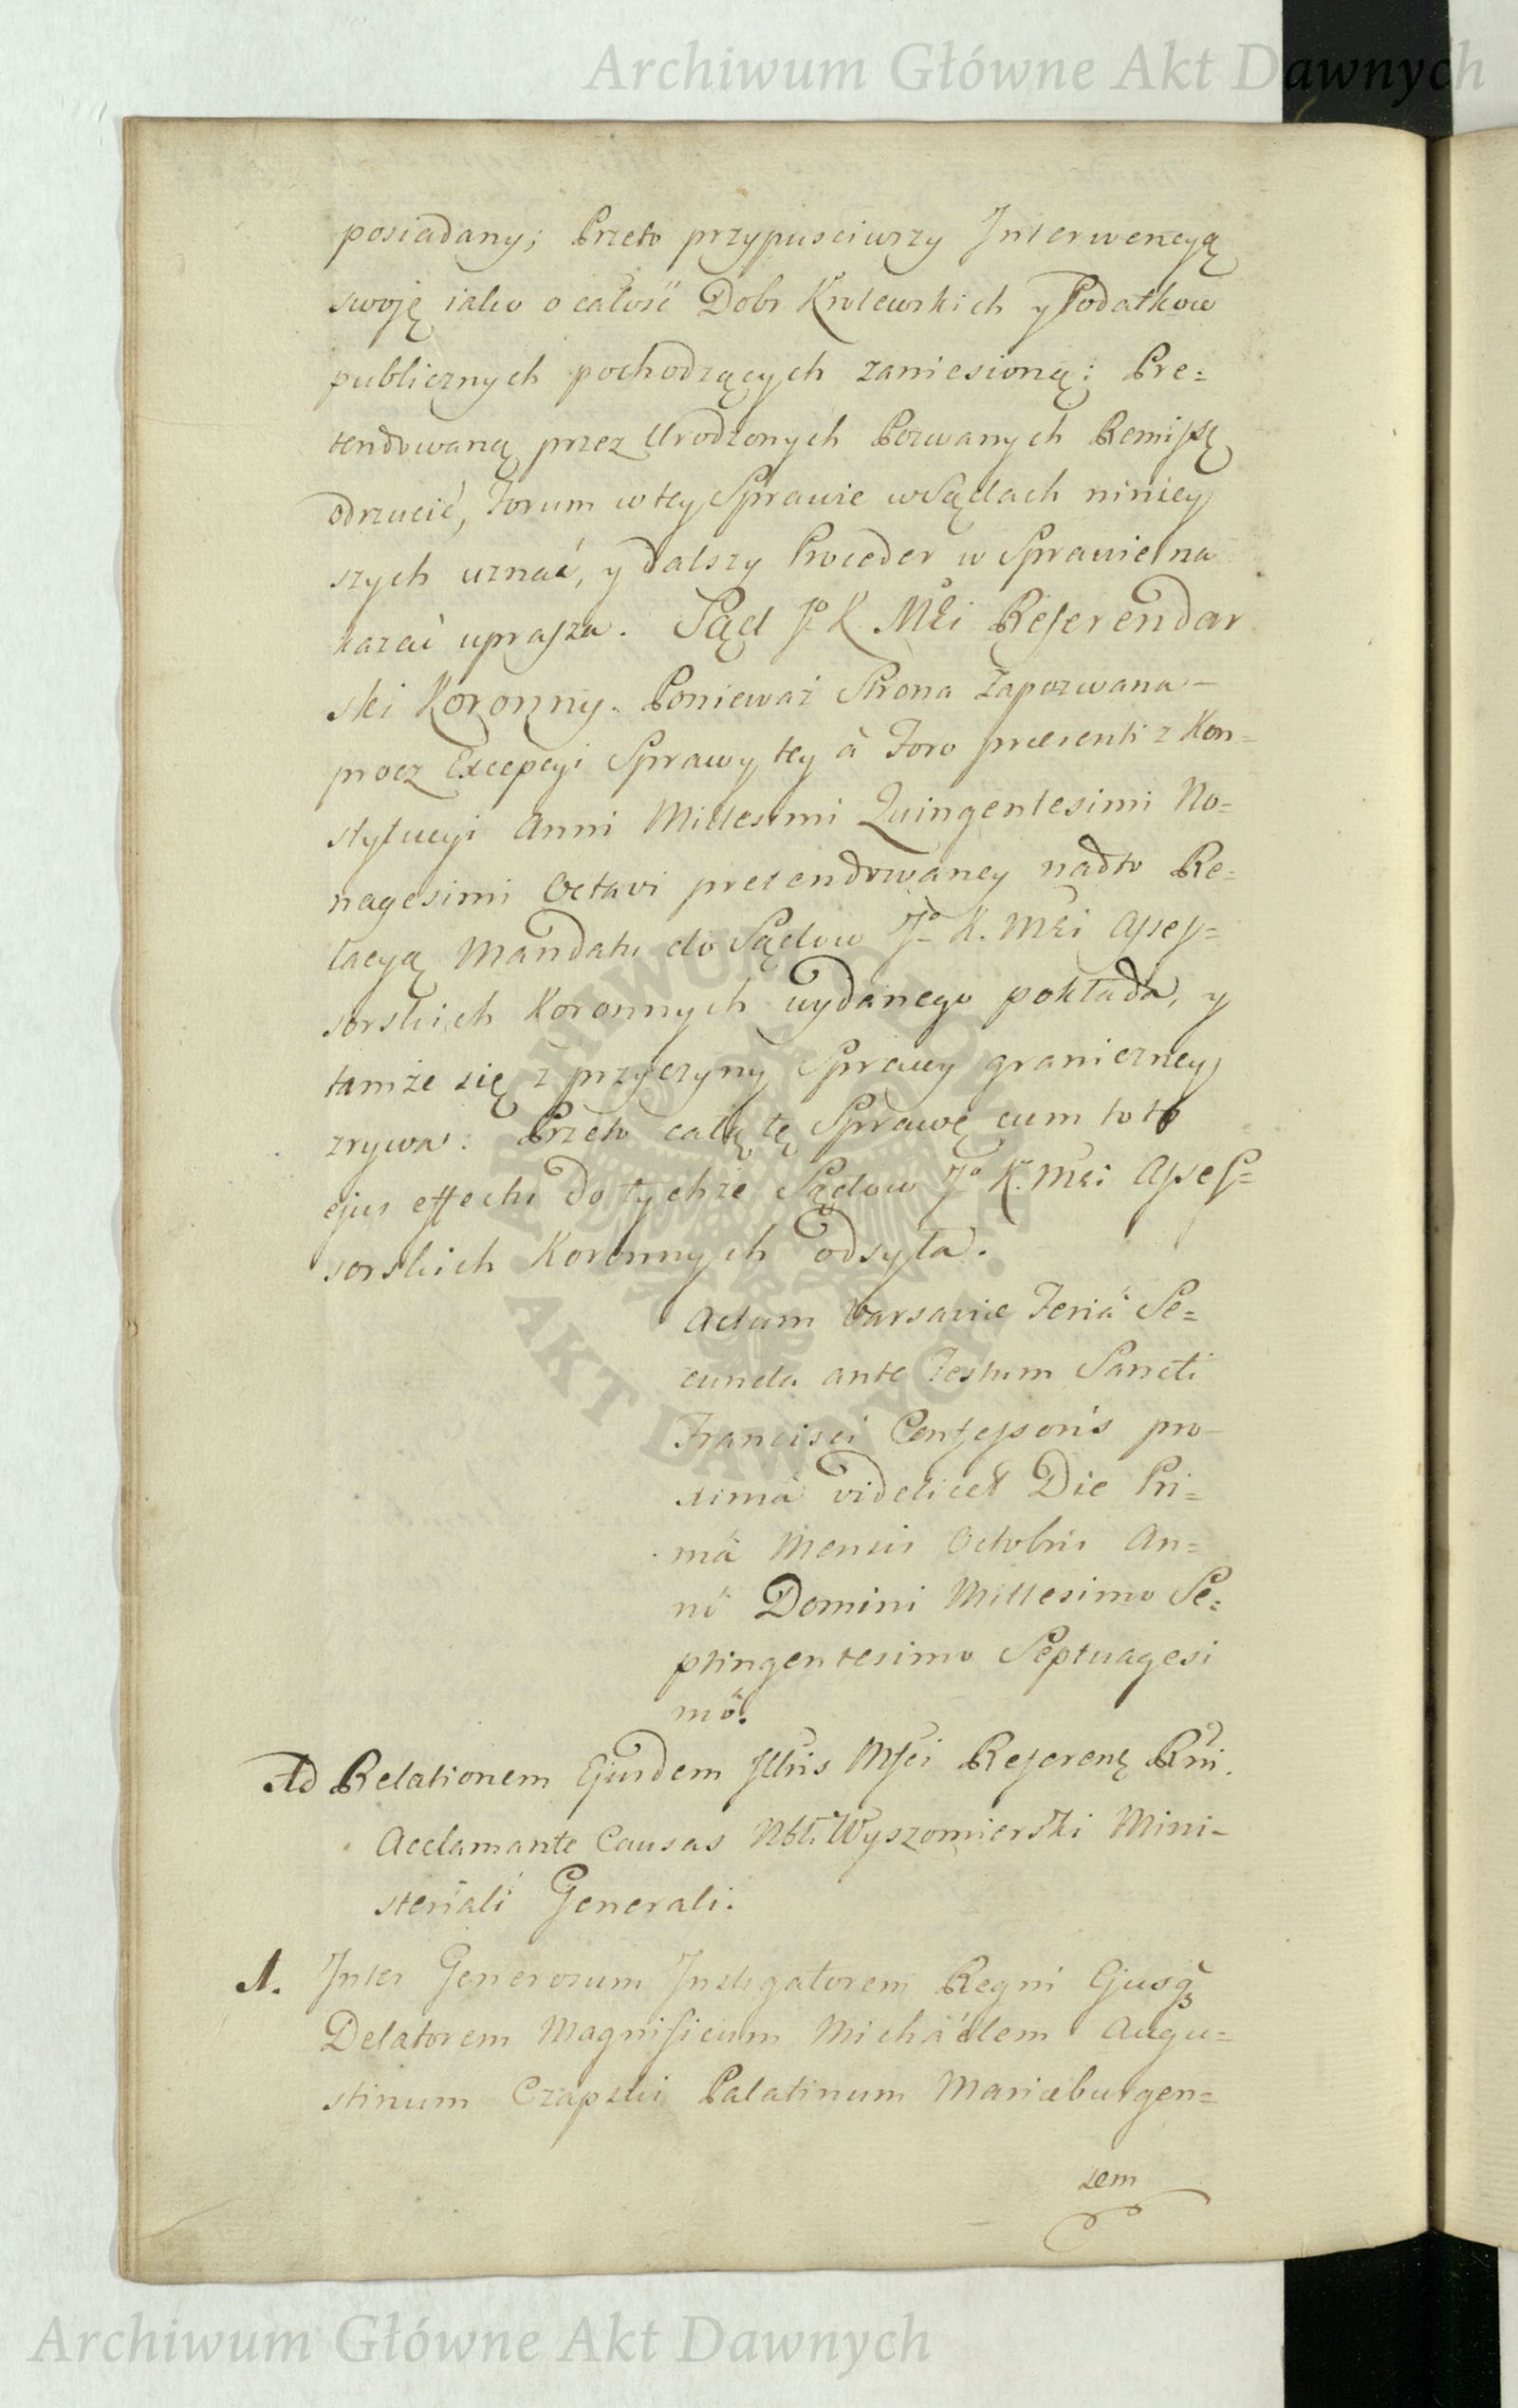 Archiwum Główne Akt Dawnych
posiadany; Przeto przypusciwszy Interwencyą
swoję iako o całość Dobr Krolewskich y Podatkow
publicznych pochodzących zaniesioną; Pre=
tendowaną przez Urodzonych Pozwanych Remissę
odrzucić, Forum w tey Sprawie w Sądach niniey
szych uznać, y dalszy Proceder w Sprawie na
kazać uprasza. Sąd Jo K Mci Referendar
ski Koronny. Ponieważ Strona Zapozwana –
procz Excepcyi Sprawy tey à Foro præsenti z Kon=
stytucyi Anni Millesimi Quingentesimi No=
nagesimi Octavi pretendowaney nadto Re=
lacyą Mandatu do Sądow Jo K. Mci Asses=
sorskich Koronnych wydanego pokłada, y
tamże się z przyczyny Sprawy graniczney
zrywa: Przeto całą tę Sprawę cum toto
ejus effectu do tychże Sądow Jo K. Mci Asses=
sorskich Koronnych odsyła.
Actum Varsaviæ Feriâ Se=
cunda ante Festum Sancti
Francisci Confessoris pro-
ximâ videlicet Die Pri=
mâ Mensis Octobris An=
nô Domini Millesimo Se=
ptingentesimo Septuagesi
mô.
Ad Relationem Ejusdem Illris Mfci Referenę Rni.
Acclamante Causas Nbli Wyszomierski Mini-
steriali Generali.
1. Inter Generosum Instigatorem Regni Ejusqȝ
Delatorem Magnificum Michaëlem Augu=
stinum Czapski Palatinum Mariæburgen=
sem
ARCHIWUM GŁÓWNE AKT DAWNYCH
Archiwum Główne Akt Dawnych